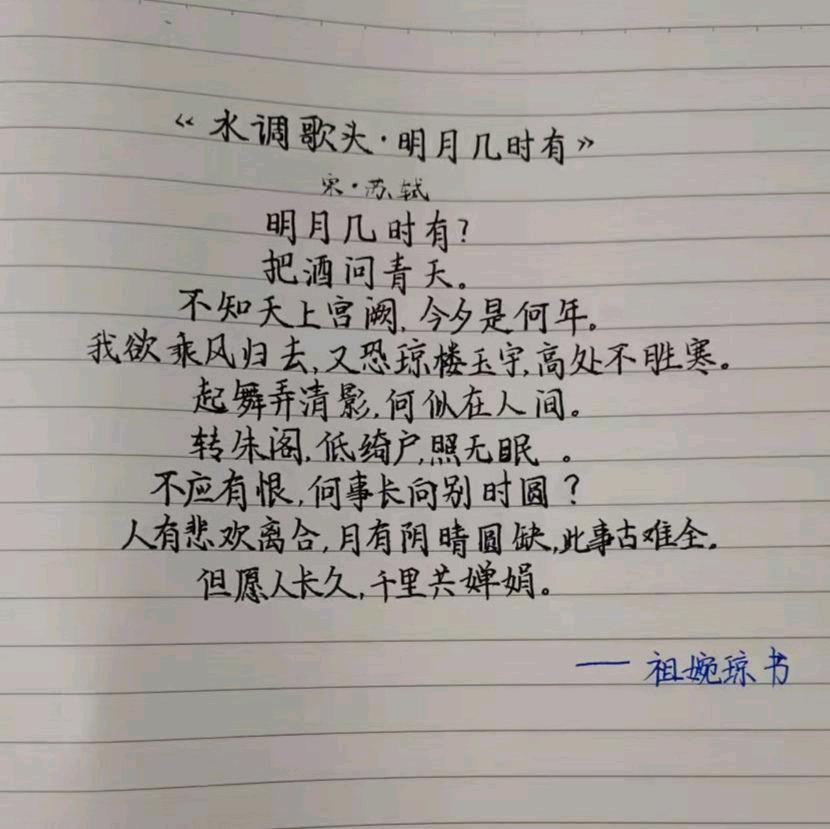 《水调歌头·明月几时有》
宋·苏轼
明月几时有?
把酒问青天。
不知天上宫阙,今夕是何年。
我欲乘风归去,又恐琼楼玉宇,高处不胜寒。
起舞弄清影,何似在人间。
转朱阁,低绮户,照无眠。
不应有恨,何事长向别时圆?
人有悲欢离合,月有阴晴圆缺,此事古难全。
但愿人长久,千里共婵娟。
——祖婉琼书